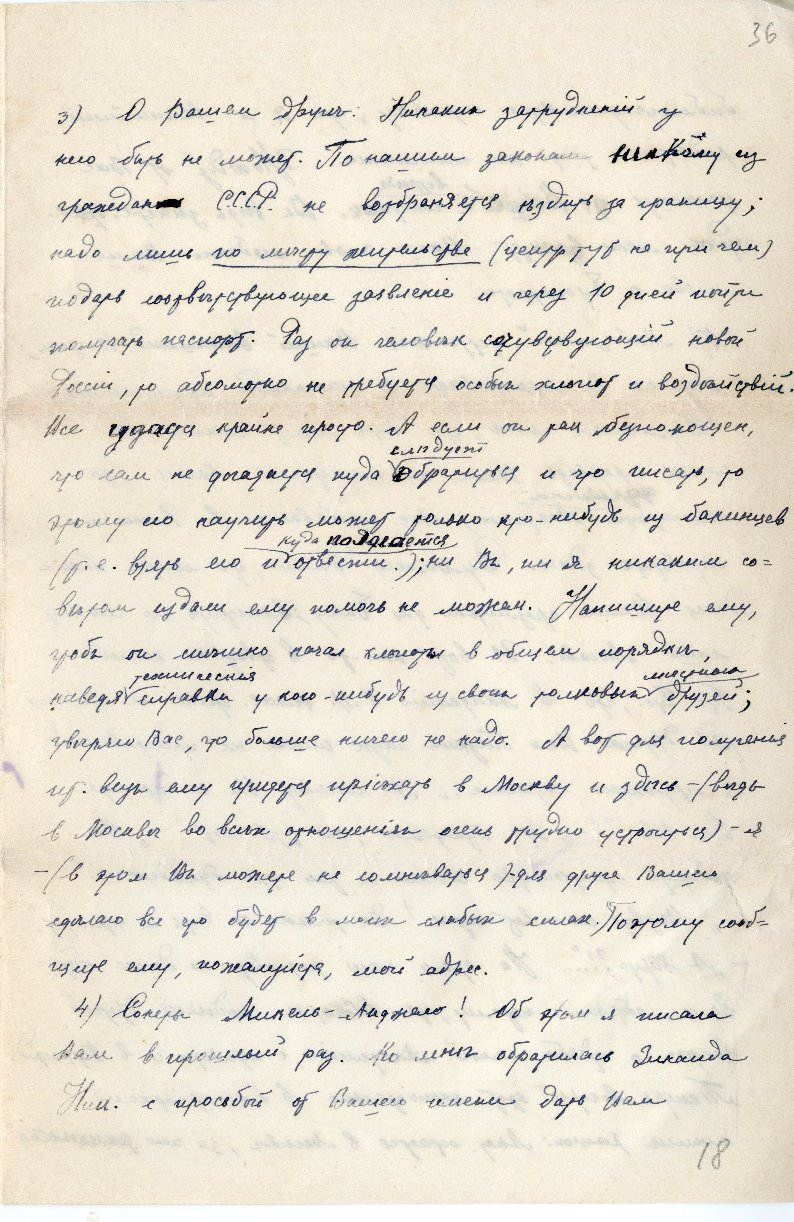 36
3) О Вашем друге: Никаких затрудненій у
него быть не может. По нашим законам никому из
граждан С.С.С.Р. не возбраняется ѣздить за границу;
надо лишь по мѣсту жительства (центр тут не при чем)
подать соотвѣтствующее заявленіе и через 10 дней пойти
получать паспорт. Раз он человѣк сочувствующій новой
Россіи, то абсолютно не требуется особых хлопот и воздѣйствій.
Все удастся крайне просто. А если он так безпомощен,
слѣдует
что сам не догадается куда обратиться и что писать, то
этому его научить может только кто-нибудь из бакинцев
куда полагается
(т.е. взять его и отвезти.); ни Вы, ни я никаким со=
вѣтом издали ему помочь не можем. Напишите ему,
чтобы он спѣшно начал хлопоты в общем порядкѣ,
техническія мѣстных
наведя справки у кого-нибудь из своих толковых друзей;
увѣряю Вас, что больше ничего не надо. А вот для полученія
ит. визы ему придется пріѣхать в Москву и здѣсь – (вѣдь
в Москвѣ во всѣх отношеніях очень трудно устроиться) – я
– (в этом Вы можете не сомнѣваться) – для друга Вашего
сдѣлаю все что будет в моих слабых силах. Поэтому сооб=
щите ему, пожалуйста, мой адрес.
4) Сонеты Микель-Анджело! Об этом я писала
Вам в прошлый раз. Ко мнѣ обратилась Зинаида
Ник. с просьбой от Вашего имени дать Вам
18